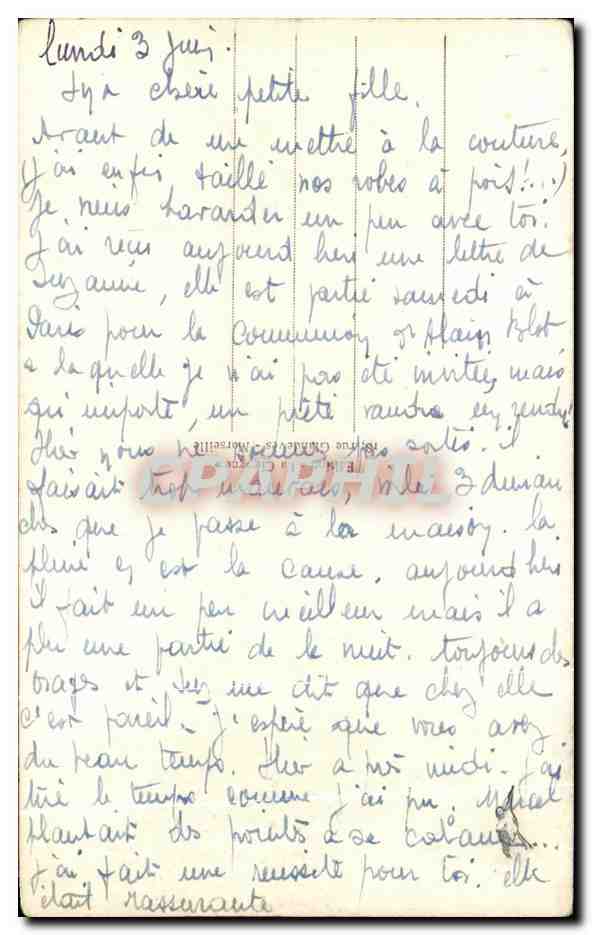 lundi 3 Juin.
Ma chère petite fille.
Avant de me mettre à la couture,
j'ai enfin taillé nos robes à pois!...)
Je viens bavarder un peu avec toi.
J'ai reçu aujourd'hui une lettre de
Suzanne, elle est partie samedi à
Paris pour la Communion d'Alain Blot
a laquelle je n'ai pas été invitée, mais
qu'importe, un prêté
Hier nous ne sommes pas sortis. il
faisait trop mauvais, voila 3 diman
ches que je passe à la maison. la
pluie en est la cause. aujourd'hui
il fait un peu meilleur mais il a
plu une partie de la nuit. toujours des
orages et Suz me dit que chez elle
c'est pareil. J'espère que vous avez
du beau temps. Hier après midi. J'ai
tué le temps comme j'ai pu.
plantait des pointes à sa cabane...
J'ai fait une réussite pour toi. elle
était rassurante
Edition "La Cigogne"
rue Grandeves - Marseille
DELCAMPHIL